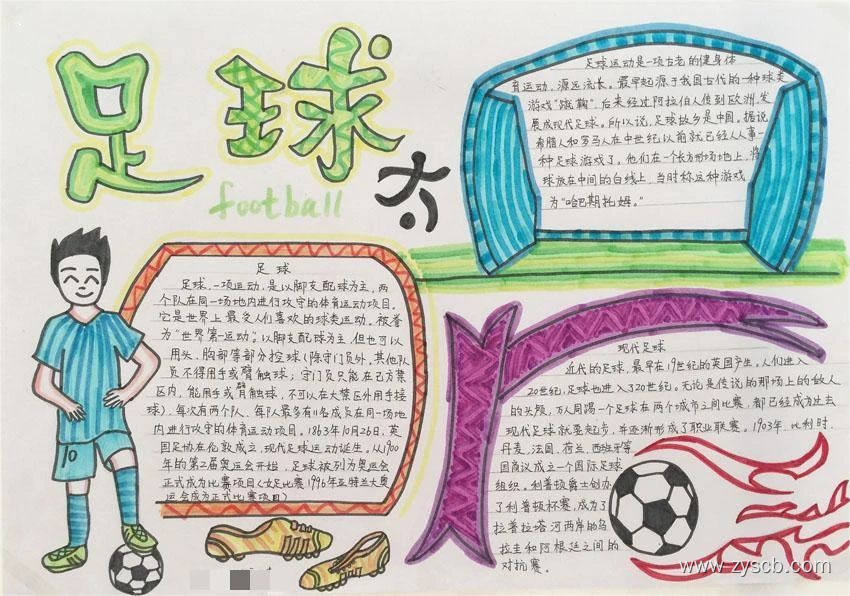 足球
football
足球运动是一项古老的健身体
育运动，源远流长。最早起源于我国古代的一种球类
游戏"蹴鞠"，后来经过阿拉伯人传到欧洲，发
展成现代足球。所以说，足球故乡是中国。据说，
希腊人和罗马人在中世纪以前就已经人人事一
种足球游戏了。他们在一个长方形场地上，将
球放在中间的白线上，当时称这种游戏
为"哈巴期托姆。"
足球
足球，一项运动，是以脚支配球为主，两
个队在同一场地内进行攻守的体育运动项目。
它是世界上最受人们喜欢的球类运动。被誉
为"世界第一运动"，以脚支配球为主，但也可以
用头、胸部等部分控球（除守门员外，其他队
员不得用手或臂触球；守门员只能在己方禁
区内，能用手或臂触球，不可以在大禁区外用手接
球），每次有两个队、每队最多有11名成员在同一场地
内进行攻守的体育运动项目。1863年10月26日，英
国足协在伦敦成立，现代足球运动诞生。从1900
年的第2届奥运会开始，足球被列为奥运会
正式成为比赛项目（女足比赛1996年亚特兰大奥
运会成为正式比赛项目）
10
现代足球
近代的足球，最早在19世纪的英国产生。人们进入
20世纪，足球也进入320世纪。无论是传说的那场上的敌人
的头颅，万人同踢一个足球在两个城市之间比赛，都已经成为过去
现代足球就要起步，并逐渐形成了职业联赛。1903年，比利时、
丹麦、法国、荷兰、西班牙等
国商议成立一个国际足球
组织。利普顿爵士创办
了利普顿杯赛，成为了
拉普拉塔河两岸的乌
拉圭和阿根廷之间的
对抗赛。
www.zyscb.com